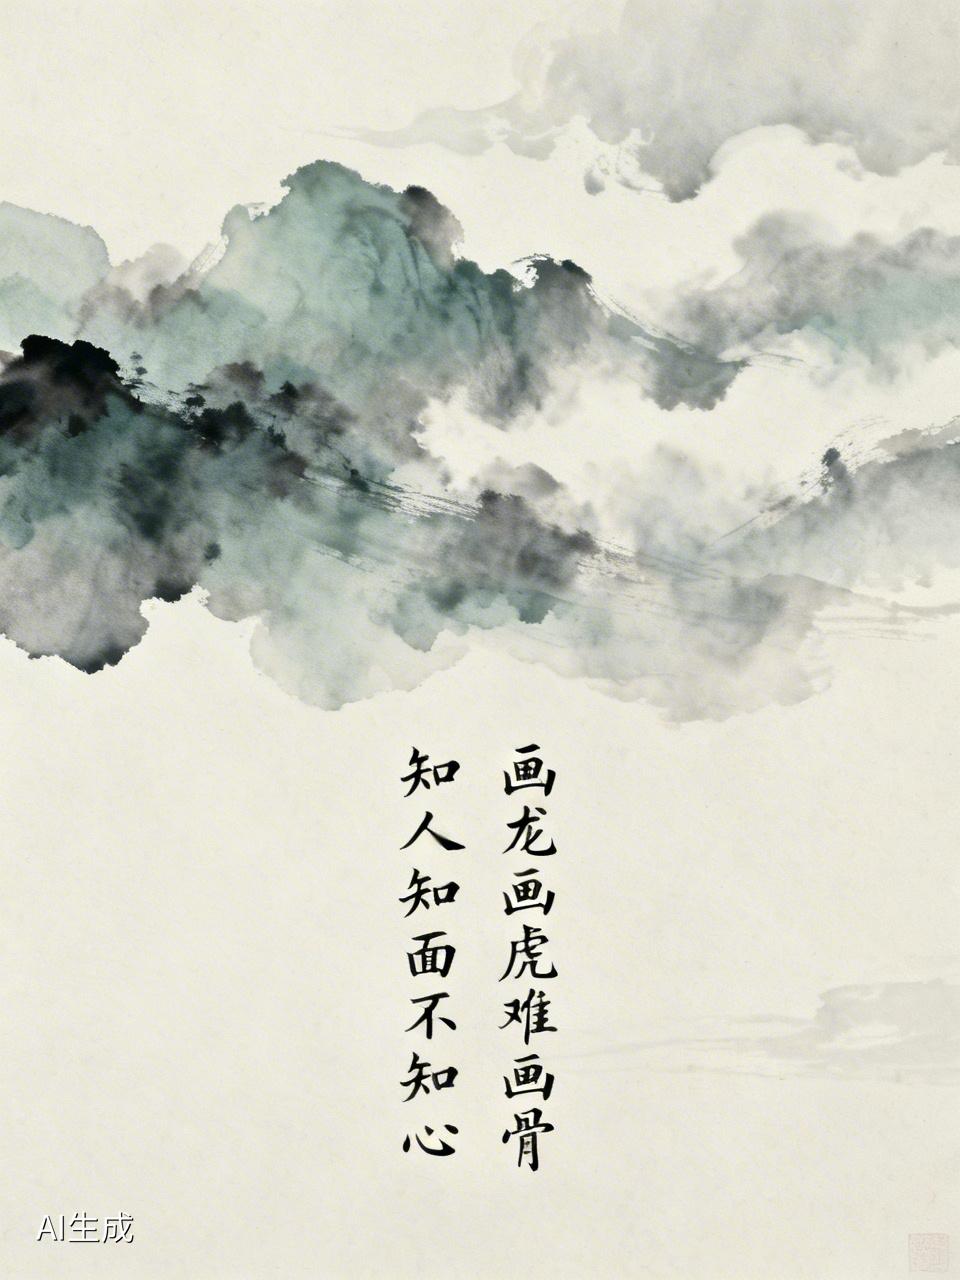 画龙画虎难画骨
知人知面不知心
AI生成